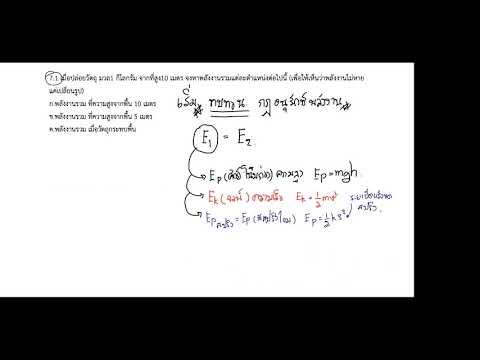 7.1 เมื่อปล่อยวัตถุ มวล1 กิโลกรัม จากที่สูง10 เมตร จงหาพลังงานรวมแต่ละตำแหน่งต่อไปนี้ (เพื่อให้เห็นว่าพลังงานไม่หาย
แค่เปลี่ยนรูป)
ก.พลังงานรวม ที่ความสูงจากพื้น 10 เมตร
ข.พลังงานรวม ที่ความสูงจากพื้น 5 เมตร
ค.พลังงานรวม เมื่อวัตถุกระทบพื้น
เริ่ม ทบทวน กฎ อนุรักษ์ พลังงาน
E₁ = E₂
Ep ความสูง Ep = mgh.
Ek (จลน์) ความเร็ว Ek = ½mv²
Ep สปริง = Ep Ep = ½ks²